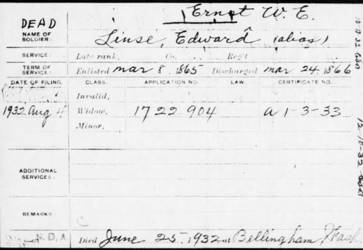 DEAD Ernst W. E.
NAME OF SOLDIER: Linse, Edward (alias)
SERVICE: Late rank, Co. Reg't
TERM OF SERVICE: Enlisted Mar 8, 1865 Discharged Mar 24, 1866
DATE OF FILING. CLASS. APPLICATION NO. LAW. CERTIFICATE NO.
Invalid,
1932 Aug 4 Widow, 1722904 A 1-3-33
Minor,
ADDITIONAL SERVICES:
REMARKS:
C
N.D.A Died June 25, 1932 at Bellingham Wash